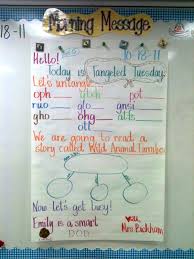 Morning Message
18-11
Hello! 10-18-11
Today is Tangled Tuesday.
Let's untangle
oph
ruo ollo ansi
gho ohg
ott
We are going to read a
story called Wild Animal Families
Now let's get busy!
Emily is a smart you,
Mrs. Buckham